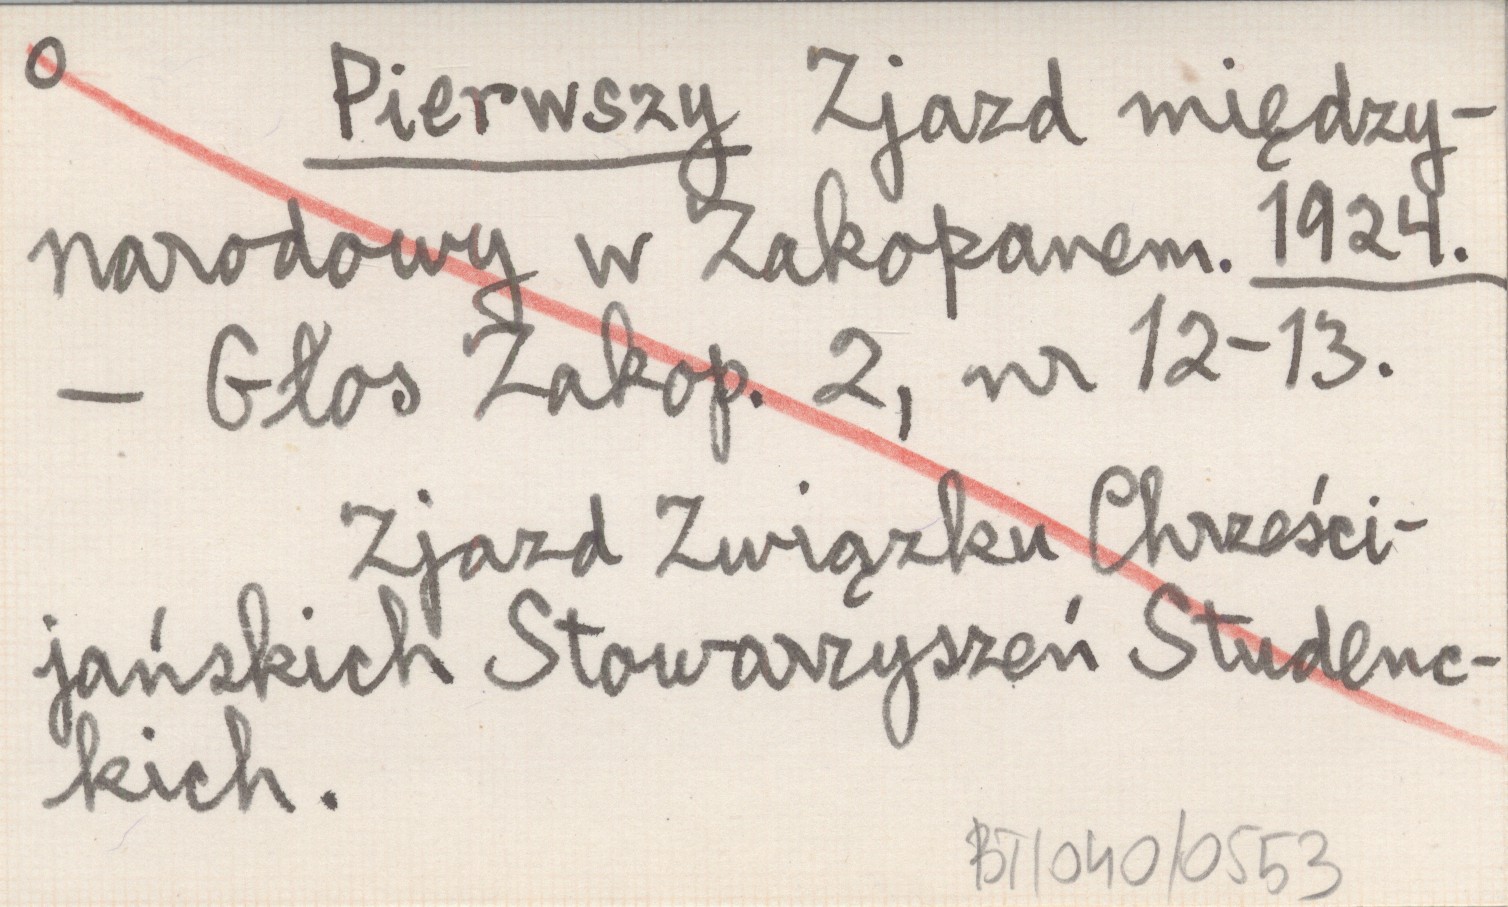 O
Pierwszy Zjazd między-
narodowy w Zakopanem. 1924.
— Głos Zakop. 2, nr 12-13.
Zjazd Związku Chrześci-
jańskich Stowarzyszeń Studenc-
kich.
BT/040/0553